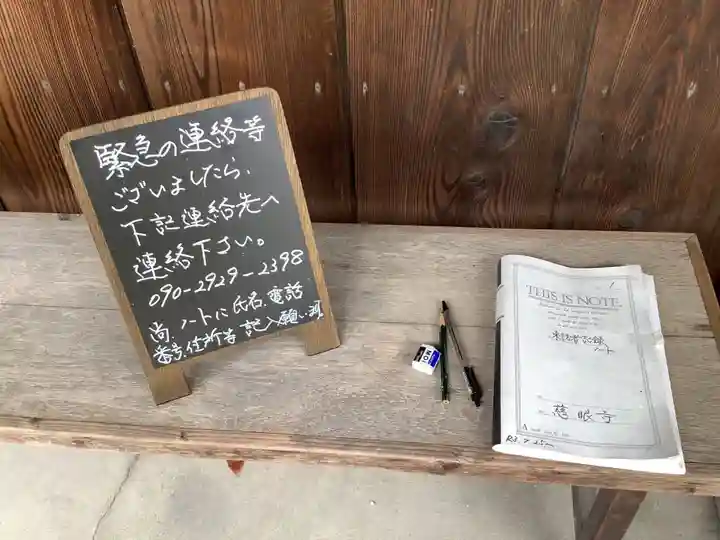 緊急の連絡等
ございましたら、
下記連絡先へ
連絡下さい。
090-2929-2398
尚、ノートに氏名、電話
番号、住所等記入願い
MONO
THIS IS NOTE.
来訪者記録
ノート
慈眼寺
A